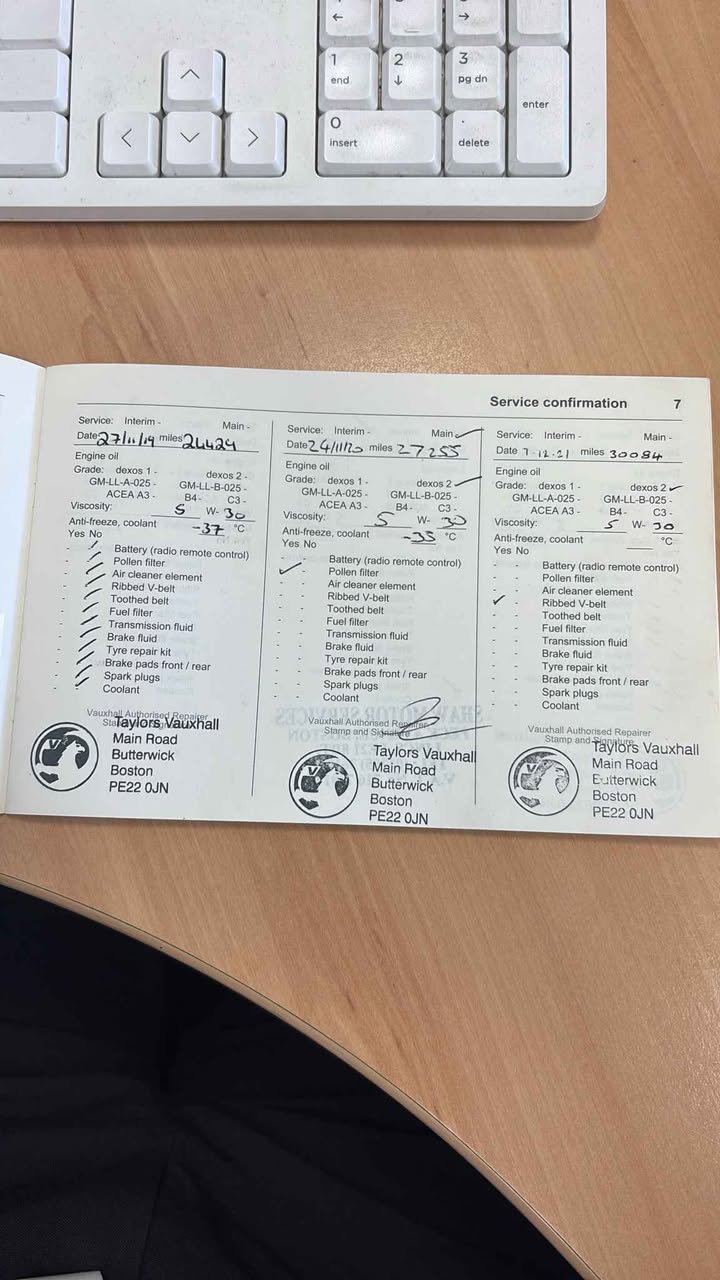 ←
→
1
end
2
↓
3
pg dn
enter
0
insert
.
delete
Service confirmation 7
Service: Interim - Main -
Date 27/11/19 miles 24424
Engine oil
Grade: dexos 1 - dexos 2 -
GM-LL-A-025 - GM-LL-B-025 -
ACEA A3 - B4- C3 -
Viscosity: 5 W- 30
Anti-freeze, coolant -37 °C
Yes No
Battery (radio remote control)
Pollen filter
Air cleaner element
Ribbed V-belt
Toothed belt
Fuel filter
Transmission fluid
Brake fluid
Tyre repair kit
Brake pads front / rear
Spark plugs
Coolant
Vauxhall Authorised Repairer
Taylors Vauxhall
Main Road
Butterwick
Boston
PE22 0JN
Service: Interim - Main
Date 24/11/20 miles 27255
Engine oil
Grade: dexos 1 - dexos 2
GM-LL-A-025 - GM-LL-B-025 -
ACEA A3 - B4- C3 -
Viscosity: 5 W- 30
Anti-freeze, coolant -35 °C
Yes No
Battery (radio remote control)
Pollen filter
Air cleaner element
Ribbed V-belt
Toothed belt
Fuel filter
Transmission fluid
Brake fluid
Tyre repair kit
Brake pads front / rear
Spark plugs
Coolant
Vauxhall Authorised Repairer
Stamp and Signature
Taylors Vauxhall
Main Road
Butterwick
Boston
PE22 0JN
Service: Interim - Main -
Date 7.12.21 miles 30084
Engine oil
Grade: dexos 1 - dexos 2
GM-LL-A-025 - GM-LL-B-025 -
ACEA A3 - B4- C3 -
Viscosity: 5 W- 30
Anti-freeze, coolant °C
Yes No
Battery (radio remote control)
Pollen filter
Air cleaner element
Ribbed V-belt
Toothed belt
Fuel filter
Transmission fluid
Brake fluid
Tyre repair kit
Brake pads front / rear
Spark plugs
Coolant
Vauxhall Authorised Repairer
Stamp and Signature
Taylors Vauxhall
Main Road
Butterwick
Boston
PE22 0JN